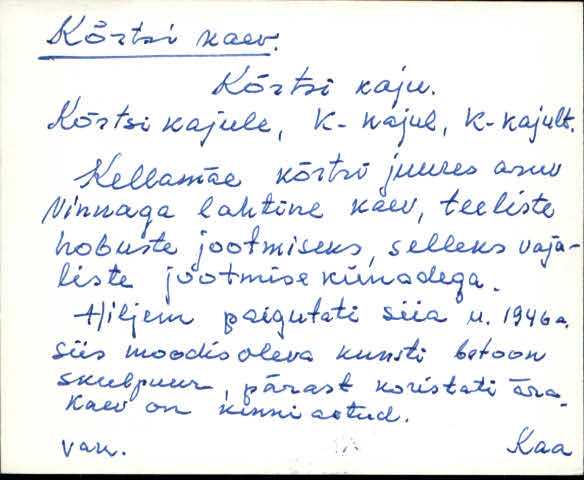 Kõrtsi kaev.
Kõrtsi kaju.
Kõrtsi kajule, K-kajul, K-kajult.
Kellamäe kõrtsi juures asuv
vinnaga lahtine kaev, teeliste
hobuste jootmiseks, selleks vaja-
liste jootmise künadega.
Hiljem paigutati siia u. 1946a.
siis moodis oleva kunsti betoon
skulpuur, pärast koristati ära.
Kaev on kinni aetud.
van. Kaa